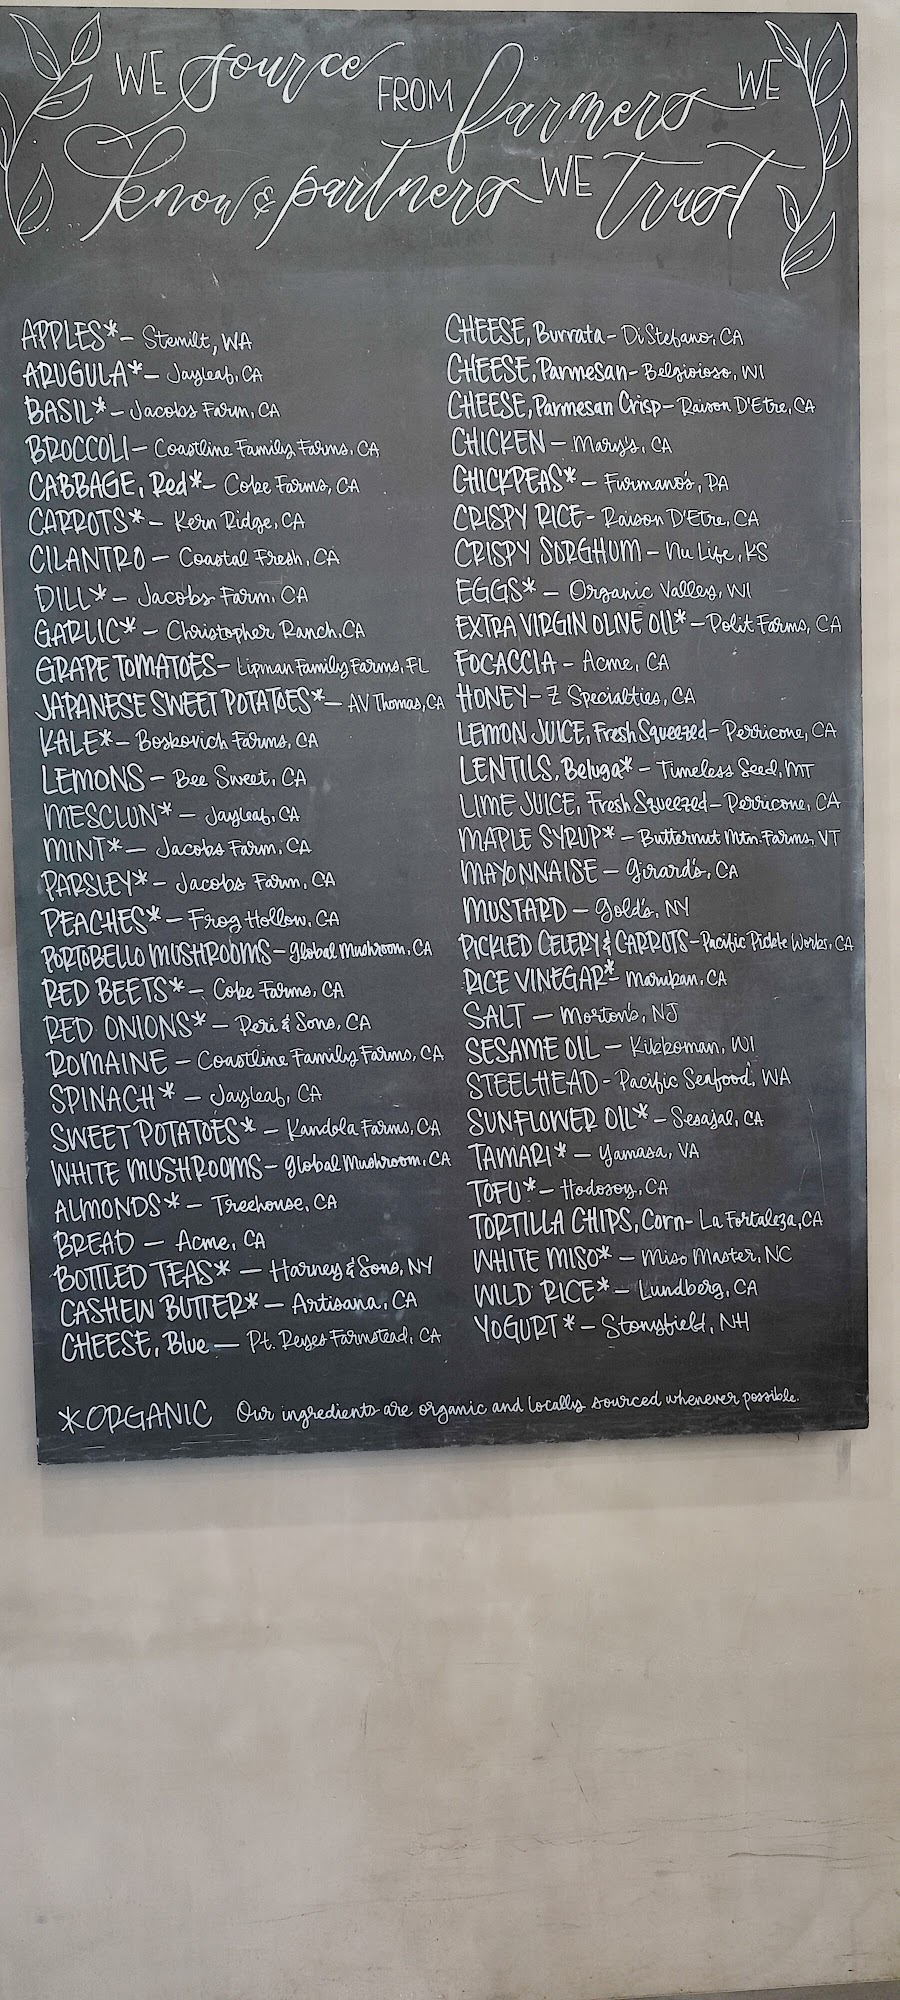 WE source FROM farmers WE
know & partners WE trust
APPLES* – Stemilt, WA
ARUGULA* – Jayleaf, CA
BASIL* – Jacobs Farm, CA
BROCCOLI – Coastline Family Farms, CA
CABBAGE, Red* – Coke Farms, CA
CARROTS* – Kern Ridge, CA
CILANTRO – Coastal Fresh, CA
DILL* – Jacobs Farm, CA
GARLIC* – Christopher Ranch, CA
GRAPE TOMATOES – Lipman Family Farms, FL
JAPANESE SWEET POTATOES* – AV Thomas, CA
KALE* – Boskovich Farms, CA
LEMONS – Bee Sweet, CA
MESCLUN* – Jayleaf, CA
MINT* – Jacobs Farm, CA
PARSLEY* – Jacobs Farm, CA
PEACHES* – Frog Hollow, CA
PORTOBELLO MUSHROOMS – Global Mushroom, CA
RED BEETS* – Coke Farms, CA
RED ONIONS* – Peri & Sons, CA
ROMAINE – Coastline Family Farms, CA
SPINACH* – Jayleaf, CA
SWEET POTATOES* – Kandola Farms, CA
WHITE MUSHROOMS – Global Mushroom, CA
ALMONDS* – Treehouse, CA
BREAD – Acme, CA
BOTTLED TEAS* – Harney & Sons, NY
CASHEW BUTTER* – Artisana, CA
CHEESE, Blue – Pt. Reyes Farmstead, CA
CHEESE, Burrata – Di Stefano, CA
CHEESE, Parmesan – Belgioioso, WI
CHEESE, Parmesan Crisp – Raison D'Etre, CA
CHICKEN – Mary's, CA
CHICKPEAS* – Furmano's, PA
CRISPY RICE – Raison D'Etre, CA
CRISPY SORGHUM – Nu Life, KS
EGGS* – Organic Valley, WI
EXTRA VIRGIN OLIVE OIL* – Polit Farms, CA
FOCACCIA – Acme, CA
HONEY – Z Specialties, CA
LEMON JUICE, Fresh Squeezed – Perricone, CA
LENTILS, Beluga* – Timeless Seed, MT
LIME JUICE, Fresh Squeezed – Perricone, CA
MAPLE SYRUP* – Butternut Mtn. Farms, VT
MAYONNAISE – Girard's, CA
MUSTARD – Gold's, NY
PICKLED CELERY & CARROTS – Pacific Pickle Works, CA
RICE VINEGAR* – Marukan, CA
SALT – Morton's, NJ
SESAME OIL – Kikkoman, WI
STEELHEAD – Pacific Seafood, WA
SUNFLOWER OIL* – Sesajal, CA
TAMARI* – Yamasa, VA
TOFU* – Hodosoy, CA
TORTILLA CHIPS, Corn – La Fortaleza, CA
WHITE MISO* – Miso Master, NC
WILD RICE* – Lundberg, CA
YOGURT* – Stonyfield, NH
*ORGANIC Our ingredients are organic and locally sourced whenever possible.